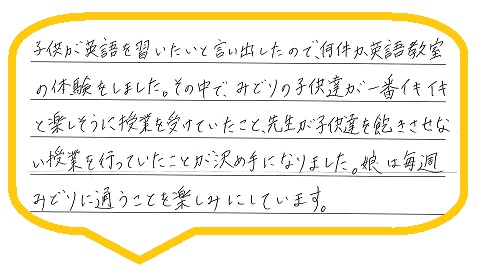 子供が英語を習いたいと言い出したので、何件か英語教室
の体験をしました。その中で、みどりの子供達が一番イキイキ
と楽しそうに授業を受けていたこと、先生が子供達を飽きさせな
い授業を行っていたことが決め手になりました。娘は毎週
みどりに通うことを楽しみにしています。